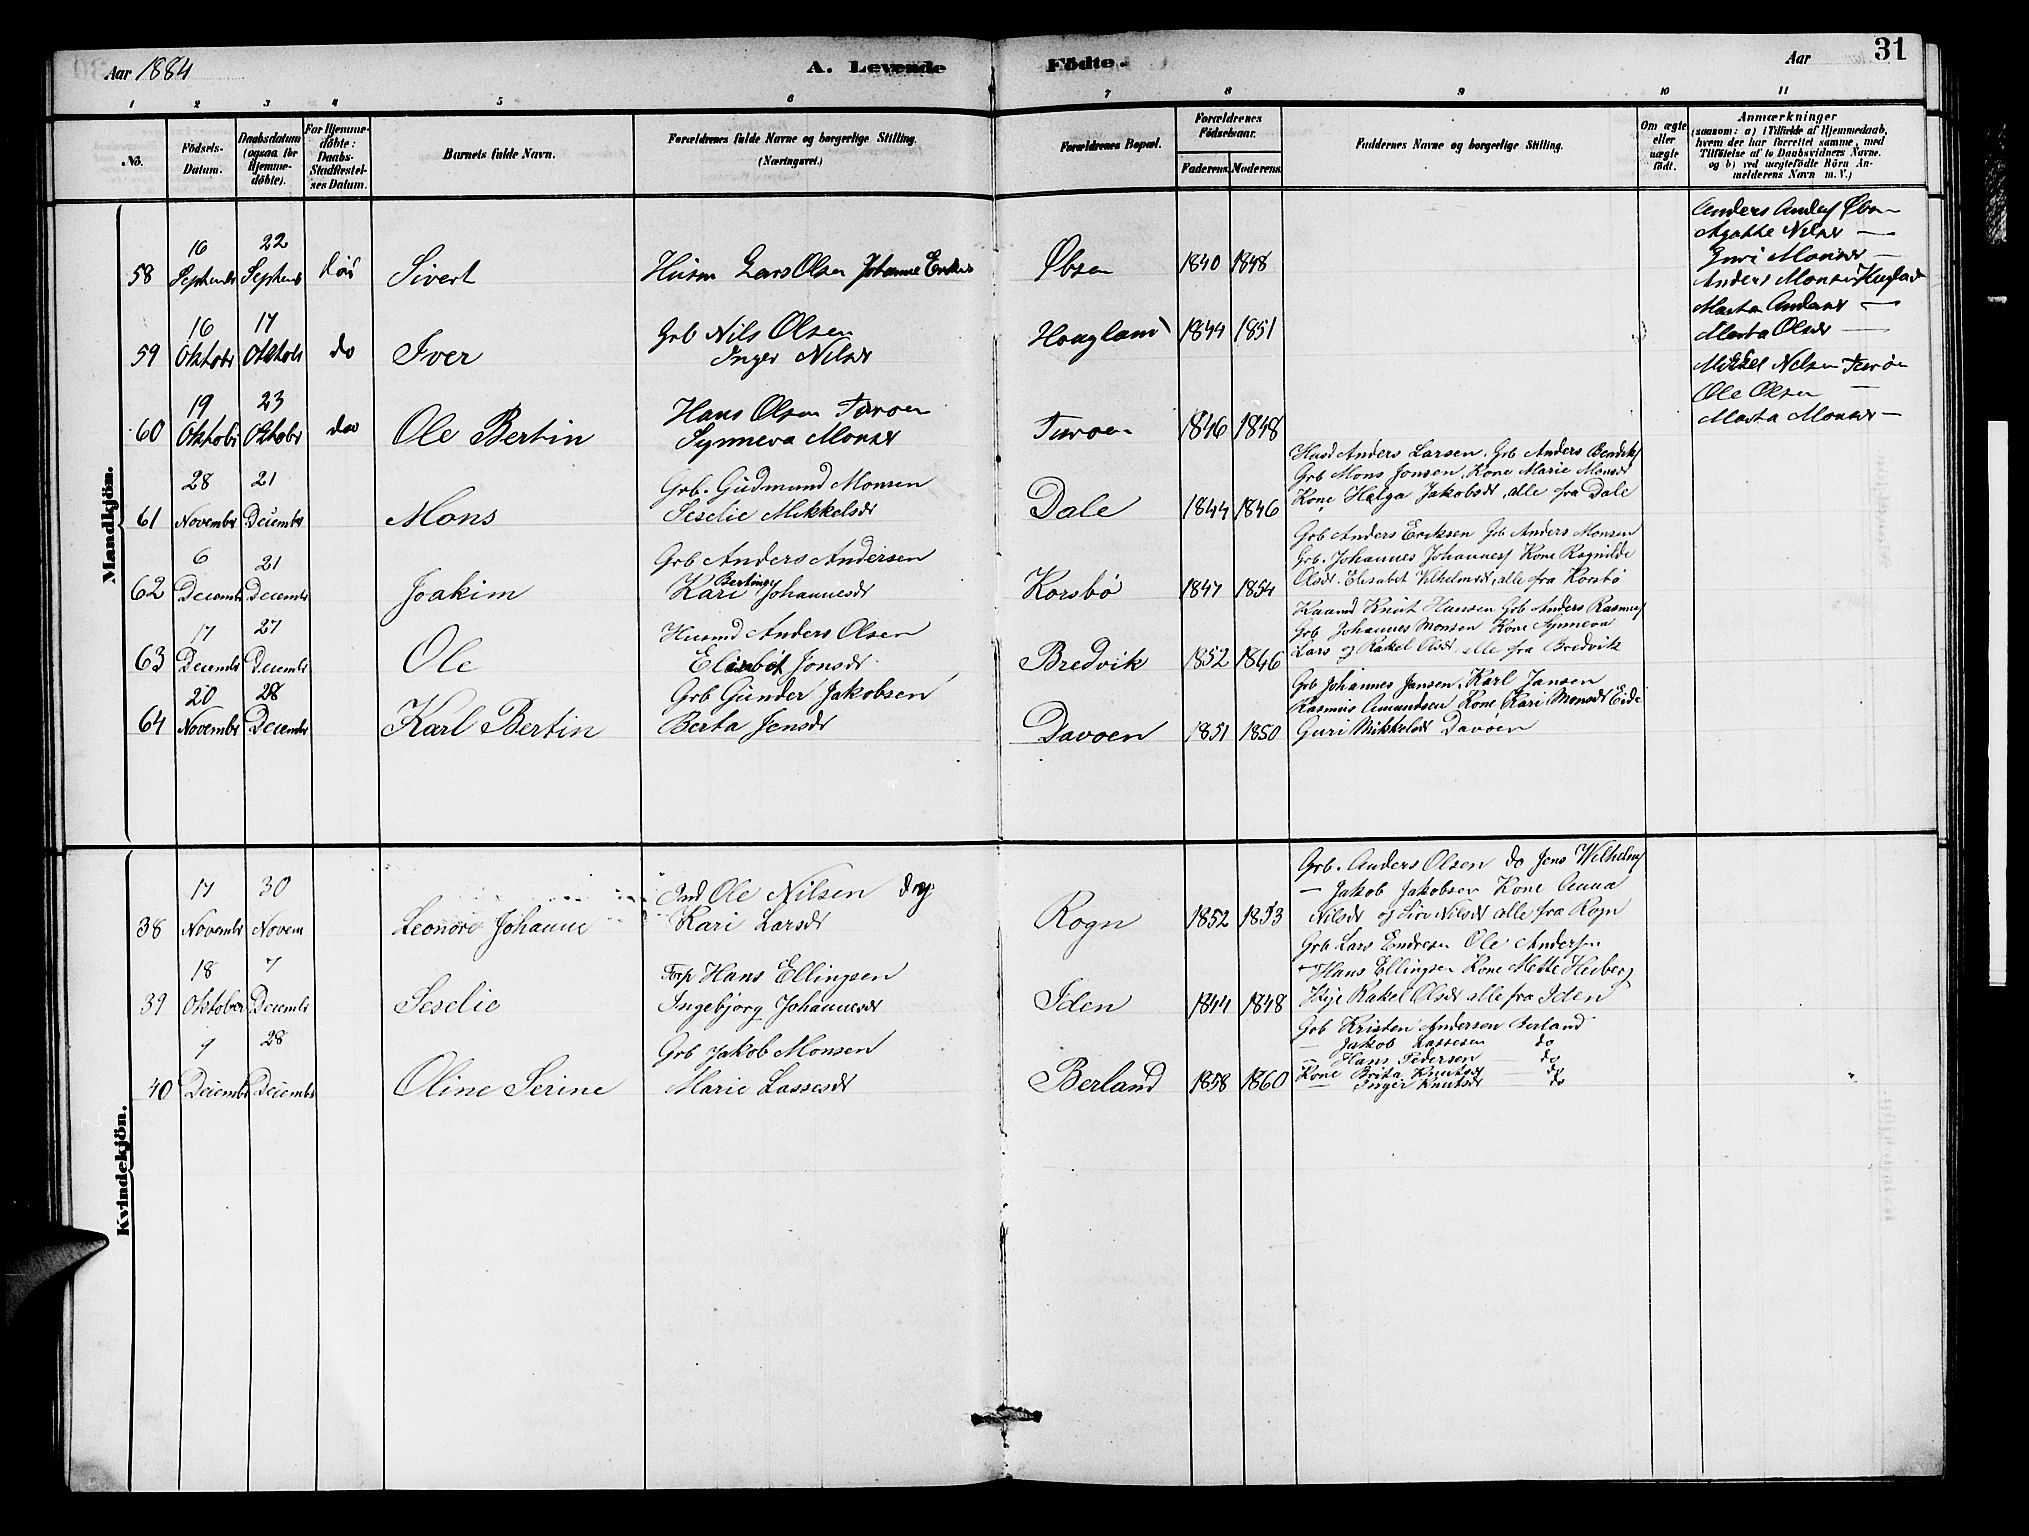 Aar 1884
A. Levende Födte.
Aar
31
1 2 3 4 5 6 7 8 9 10 11
No.
Födsels-
Datum.
Daabsdatum
(ogsaa for
Hjemme-
döbte).
For Hjemme-
döbte:
Daabs-
Stadfæstel-
ses Datum.
Barnets fulde Navn.
Forældrenes fulde Navne og borgerlige Stilling.
(Næringsvei.)
Forældrenes Bopæl.
Forældrenes
Födselsaar.
Faderens. Moderens.
Faddernes Navne og borgerlige Stilling.
Om ægte
eller
uægte
født.
Anmærkninger
(saasom: a) i Tilfælde af Hjemmedaab,
hvem der har forrettet samme, med
Tilföielse af to Daabsvidners Navne.
og b) ved uægtefödte Börn An-
melderens Navn m. V.)
Mandkjön.
58
16
Septembr
22
Septemb
Sivert
Husm Lars Olsen Johanne
Øbsen
1840 1848
Anders
Agathe Nilsd —
Guri Monsd —
59
16
Oktobr
17
Oktobr
do
Iver
Grb Nils Olsen
Inger Nilsd
Hougland
1844 1851
Anders Monsen
Marta Andersd —
Marta Olsd —
60
19
Oktobr
23
Oktobr
do
Ole Bertin
Hans Olsen Turöen
Synneva Monsd
Turöen
1846 1848
Mikkel Nilsen Turöen
Ole Olsen —
Marta Monsd —
61
28
Novembr
21
Decembr
Mons
Grb. Gudmund Monsen
Seselie Mikkelsdt
Dale
1844 1846
Husd Anders Larsen. Grb Anders Bendiks
Grb Mons Jonsen, Kone Marie Monsdt
Kone Helga Jakobsdt, alle fra Dale
62
6
Decembr
21
Decembr
Joakim
Grb Anders Andersen
Kari Bertine Johannesdt
Korsbø
1847 1854
Grb Anders Eriksen Grb Anders Monsen
Grb. Johannes Johannes Kone Ragnilde
Olsdt. Elisabet Vilhelmsdt, alle fra Korsbø
63
17
Decembr
27
Decembr
Ole
Husmd Anders Olsen
Elisabet Jonsdt
Bredvik
1852 1846
Knut Hansen Grb Anders Rasmus
Grb Johannes Monsen Kone Synneva
Lars og Rakel Olsdt, alle fra Bredvik
64
20
Novembr
28
Decembr
Karl Bertin
Grb Gunder Jakobsen
Berta Jensdt
Davöen
1851 1850
Grb Johannes Jansen, Karl Jansen
Rasmus Amundsen Kone Kari Monsdt Eide
Guri Mikkelsdt Davöen
Kvindekjön.
38
17
Novembr
30
Novem
Leonore Johanne
Ind Ole Nilsen
Kari Larsdt
Rogn
1852 1853
Grb. Anders Olsen do Jens Wilhelms
— Jakob Jakobsen Kone Anna
Nilsdt og Siri Nilsdt alle fra Rogn
39
18
Oktober
7
Decembr
Seselie
Forp Hans Ellingsen
Ingebjorg Johannesdt
Iden
1844 1848
Grb Lars Endresen Ole Andersen
— Hans Ellingsen Kone Mette Herberg
Pige Rakel Olsdt alle fra Iden
40
7
Decembr
28
Decembr
Oline Serine
Grb Jakob Monsen
Marie Lassesdt
Berland
1858 1860
Grb Kristen Andersen Berland
— Jakob Lassesen do
— Hans Pedersen — do
Kone Brita Knutsdt — do
— Inger Knutsdt do